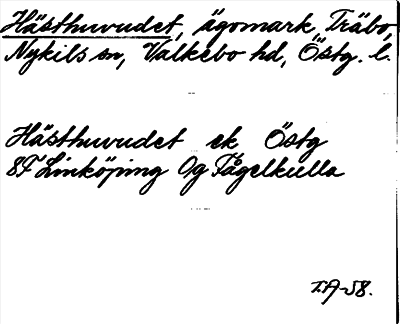 Hästhuvudet, ägomark, Träbo,
Nykils sn, Valkebo hd, Östg. l.
Hästhuvudet ek Östg
8F Linköping Og Fågelkulla
T.A-58.